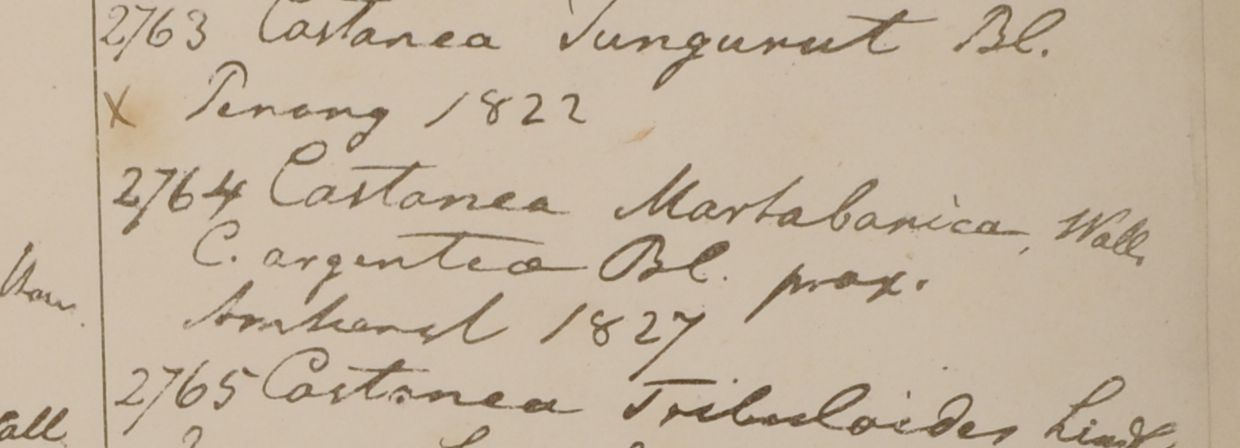 2763 Castanea Tungurut Bl.
X Penang 1822
2764 Castanea Martabanica, Wall.
C. argentea Bl. prox.
Amherst 1827
2765 Castanea Tribuloides Lindl.
all